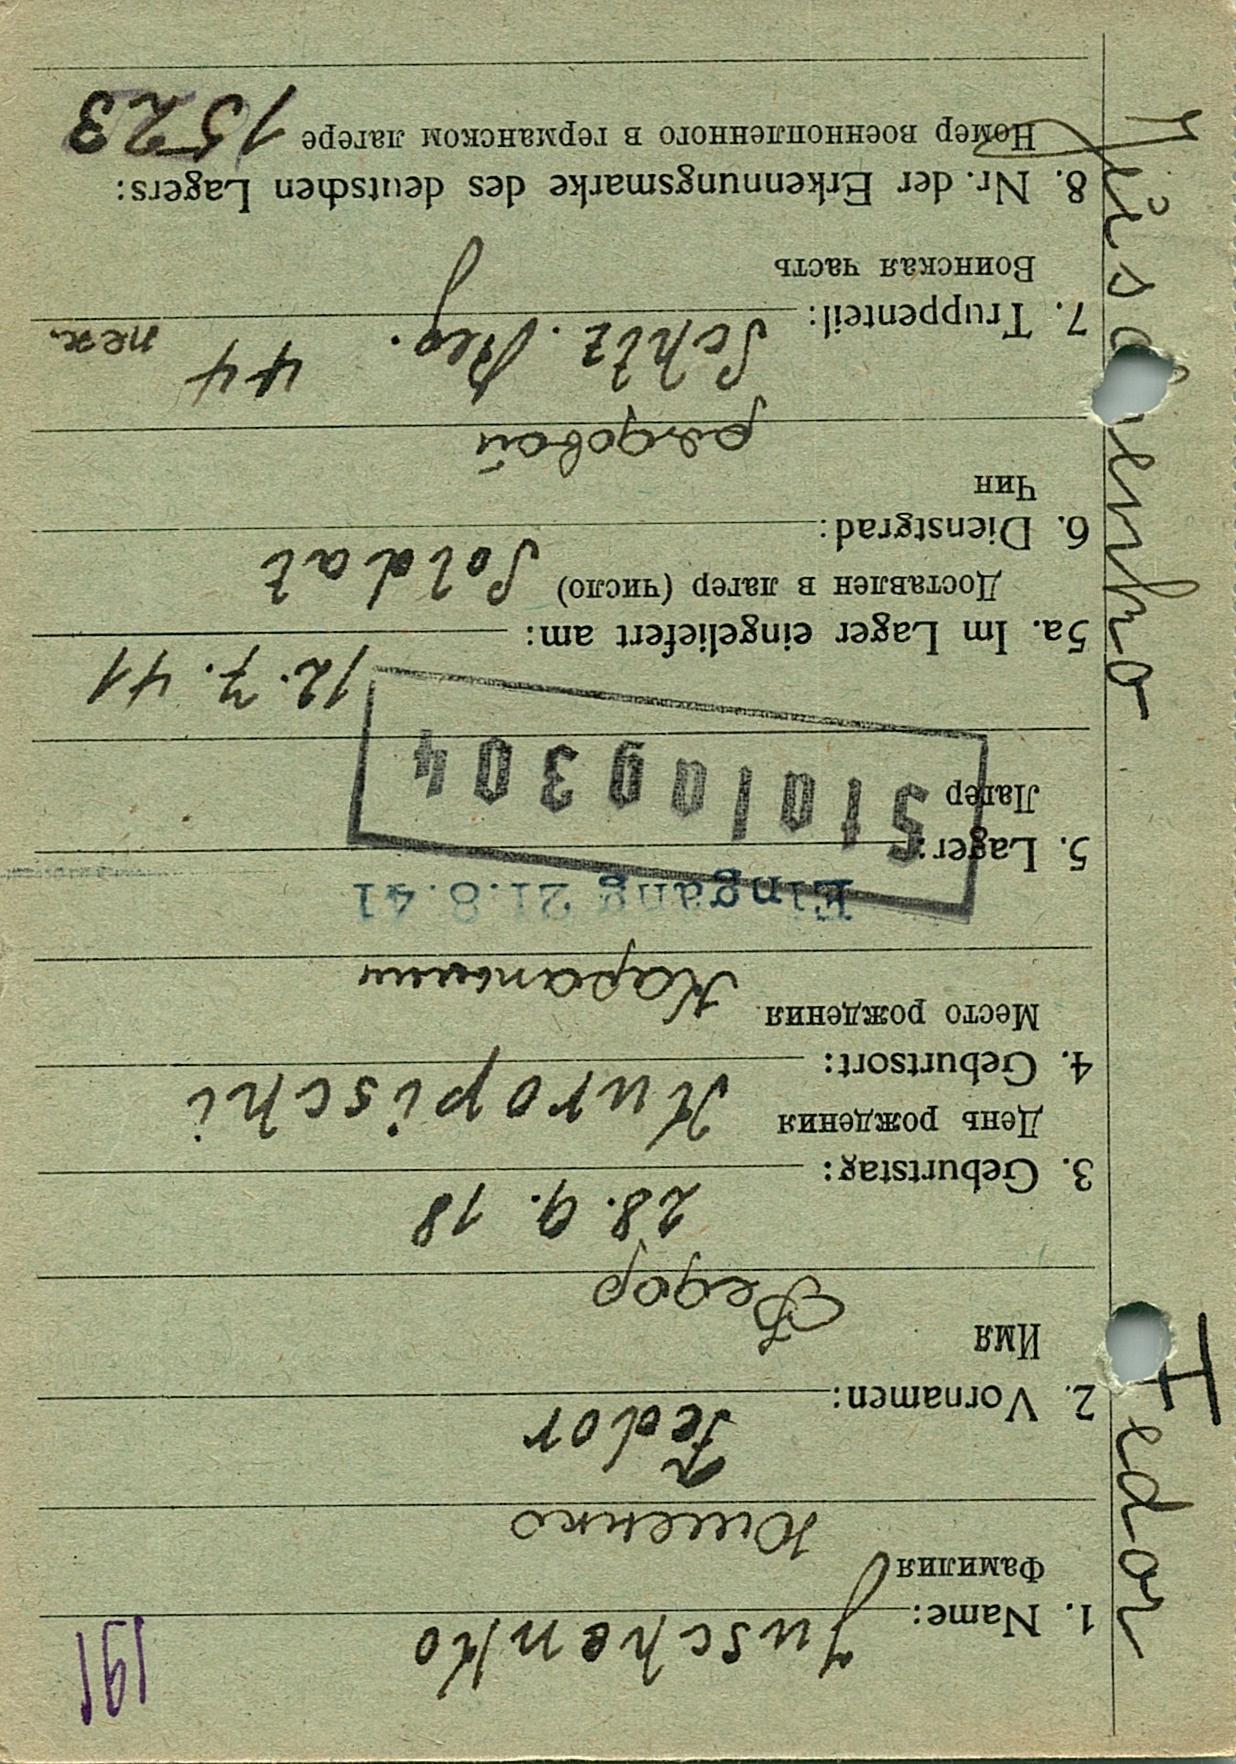 191
1. Name: Juschenko
Фамилия Юшенко
2. Vornamen: Fedor
Имя Федор
3. Geburtstag: 28. 9. 18
День рождения
4. Geburtsort: Kuropischi
Место рождения
Eingang 21.8.41
5. Lager: Stalag 304
Лагер
5a. Im Lager eingeliefert am: 12. 7. 41
Доставлен в лагер (число)
6. Dienstgrad: Soldat
Чин рядовой
7. Truppenteil: Schtz. Reg. 44
Воинская часть
8. Nr. der Erkennungsmarke des deutschen Lagers:
Номер военнопленного в германском лагере 1523
Fedor